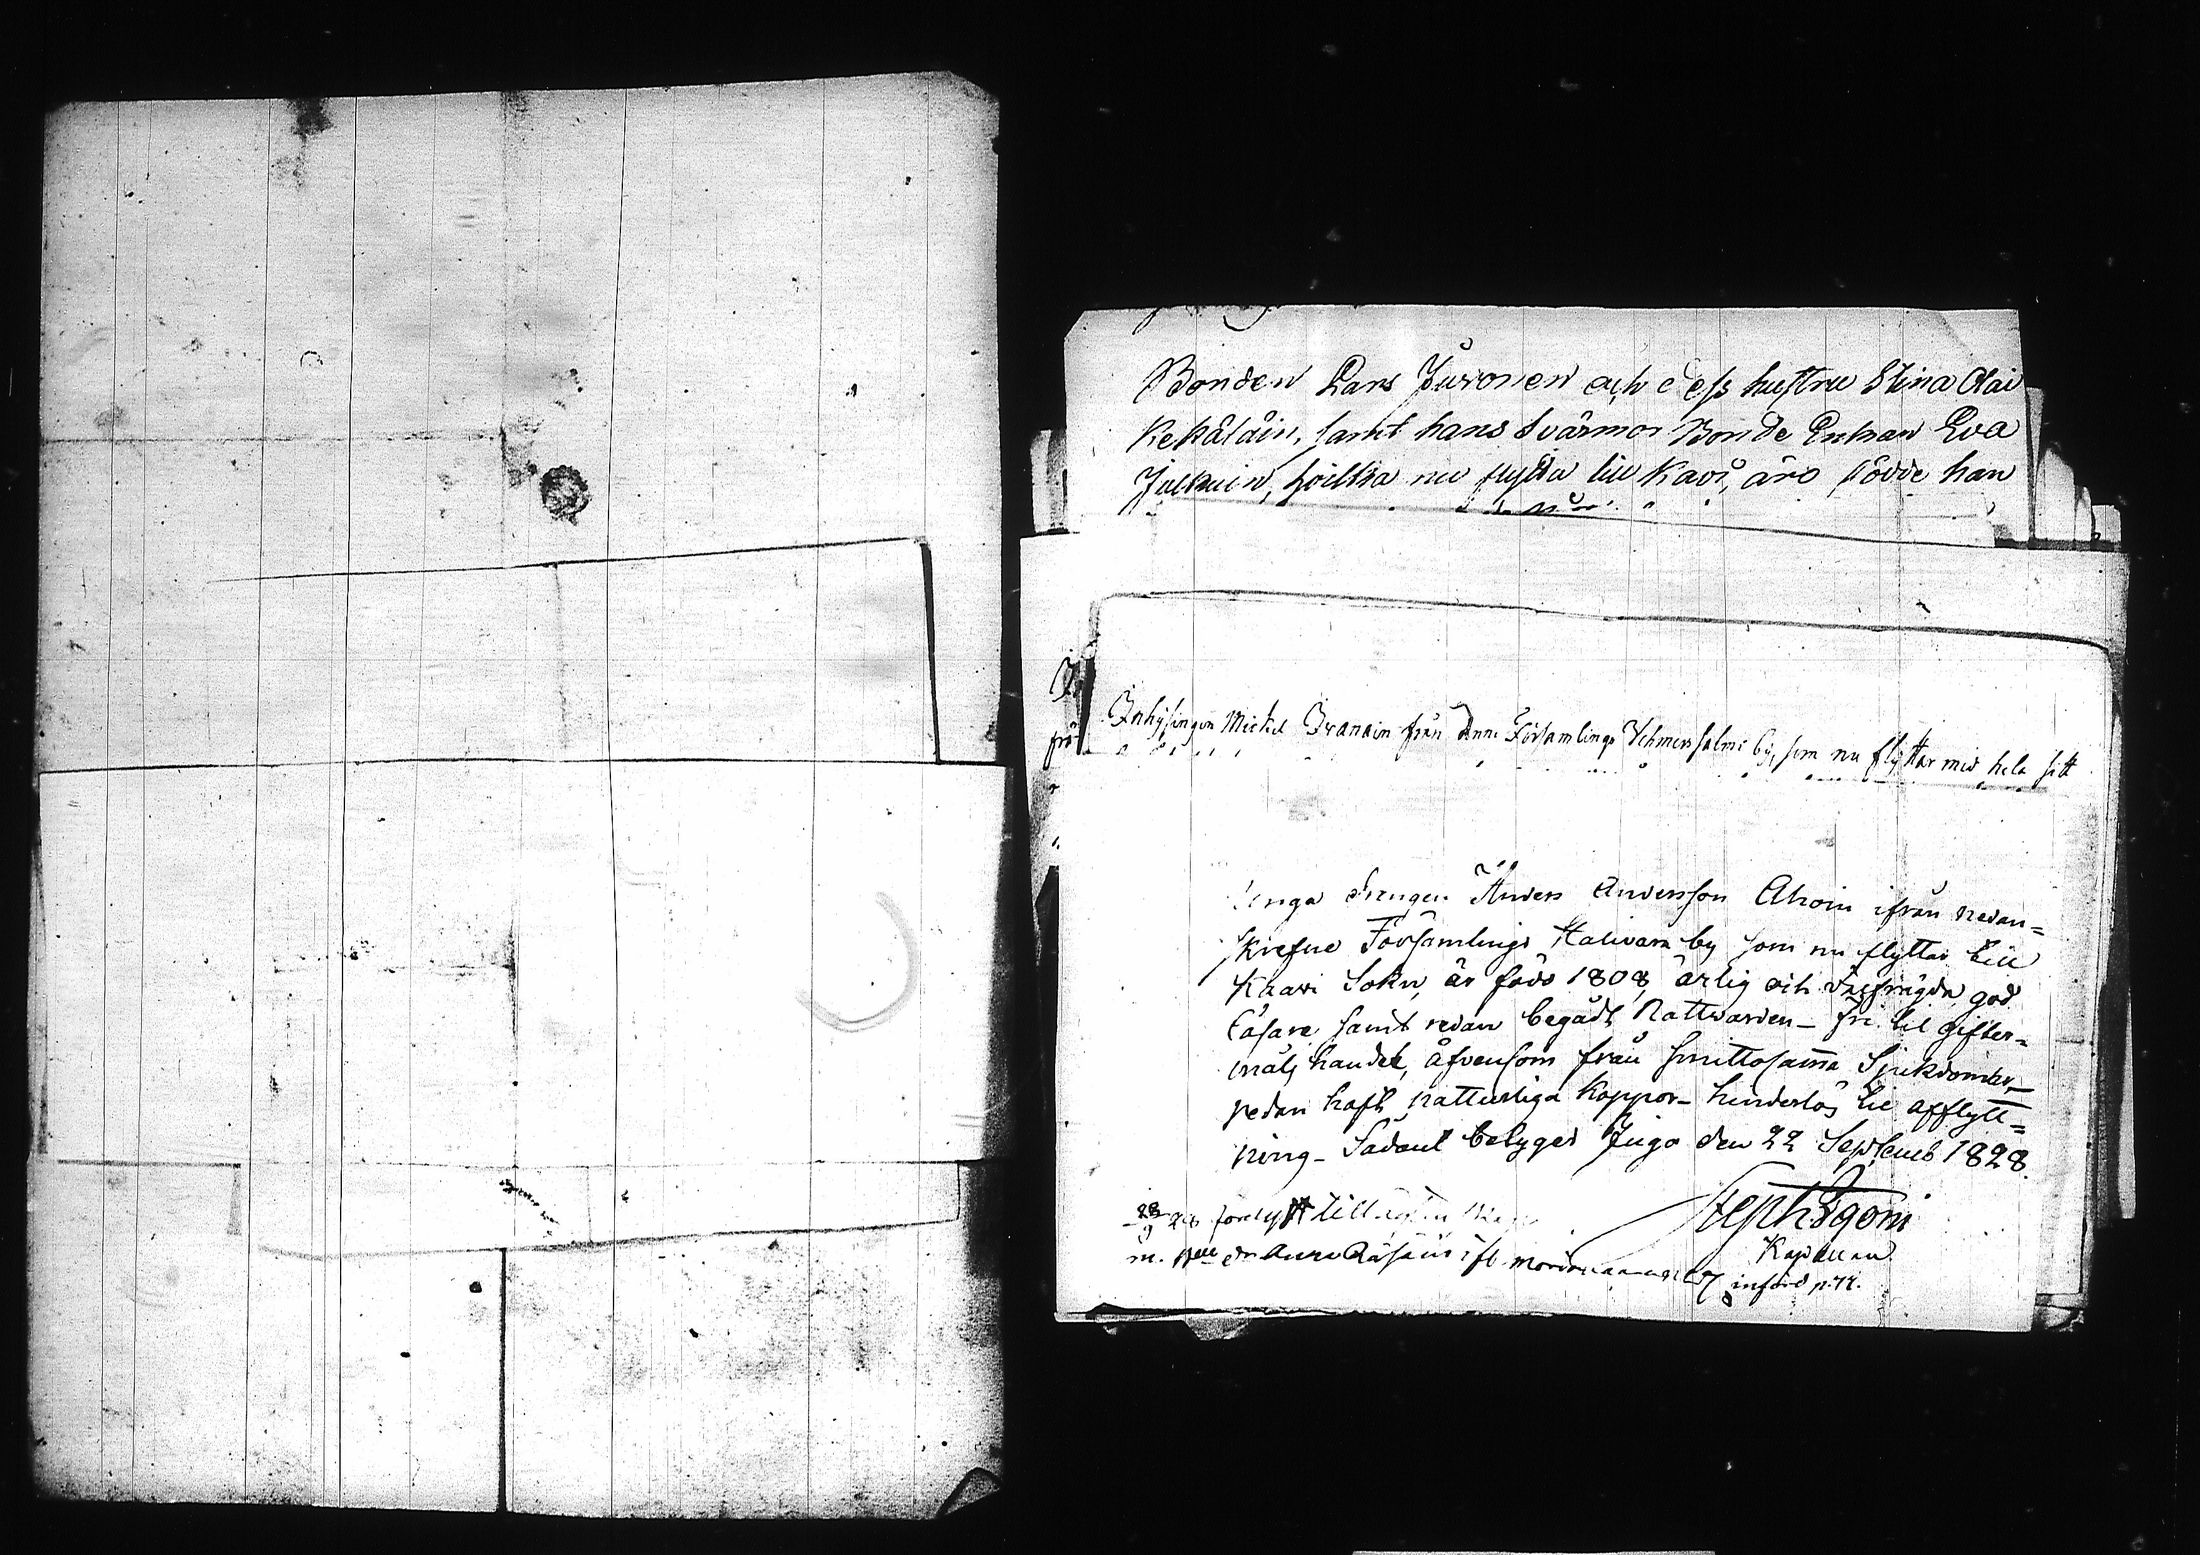 Bonden Lars Juronen och dess hustru Stina Olai
Kekäläin, samt hans Svärmor Bonde Enkan Eva
Julkuin, hvilka nu flytta till Kavi, äro födde han
In
frå
Inhysingen Mickel Iranain från denne Församlings Vehmersalmi by, som nu flyttar med hela sitt
Unga drengen Anders Andersson Ahoin ifrån nedan=
skrefne Församlings Halivara by som nu flyttar till
Kaavi Sokn, är född 1808, ärlig och välfrägda, god
Läsare samt redan begådt Nattvarden – fri til gifter=
måls handel, äfvensom från smittosam̄a Sjukdomar –
redan haft natturliga Koppor – hinderlös til afflytt=
ning – Sådant betygas Juga den 22 Septemb 1828.
Steph Sgoni
Kapellan
28/9 28 förlyst till
m. Pen dr Anna Räsäin ifl.
införd p. 74.